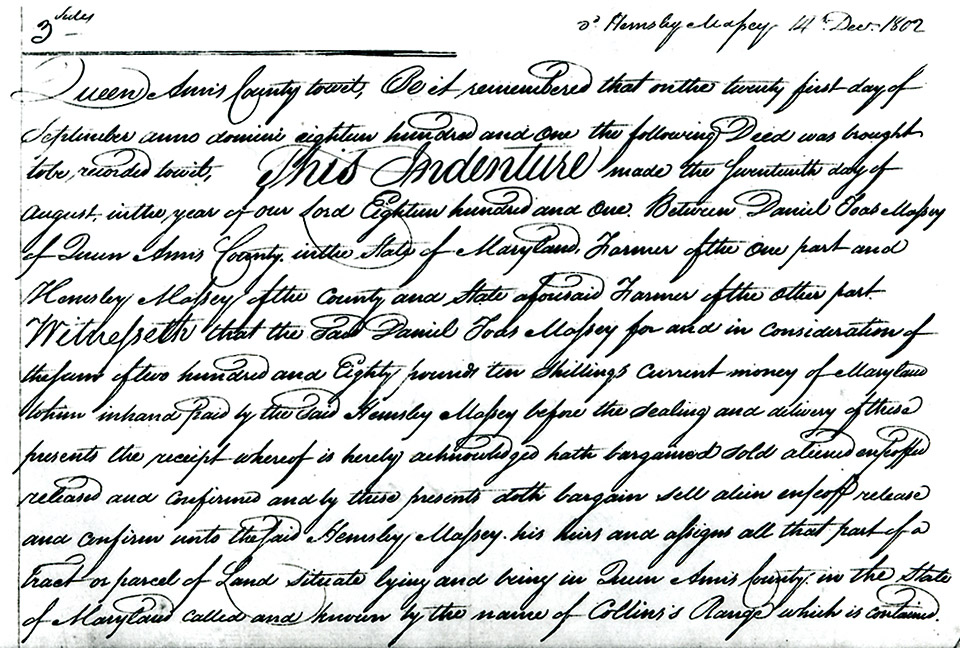 3 Sides
Hemsley Massey 14th Decr. 1802
Queen Anns County towit, Be it remembered that on the twenty first day of
September anno domini eighteen hundred and one the following Deed was brought
to be, recorded towit, This Indenture made the day of
August, in the, year of our Lord Eighteen hundred and One. Between Daniel Toas Massey
of Queen Anns County. in the State of Maryland. Farmer of the One part and
Hemsley Massey of the County and State aforesaid Farmer of the Other part.
Witnesseth that the Said Daniel Toas Massey for and in consideration of
the sum of two hundred and Eighty pounds ten Shillings Current money of Maryland
inhand Paid by the Said Hemsley Massey before the Sealing and delivery of these
presents the receipt whereof is hereby acknowledged hath bargained Sold aliened enfeoffed
released and Confirmed and by these presents doth bargain sell alien enfeoff release
and confirm unto the Said Hemsley Massey. his heirs and assigns all that part of a
tract or parcel of Land Situate lying and being in Queen Anns County. in the State
of Maryland called and known by the name of Collins's Range which is contained.